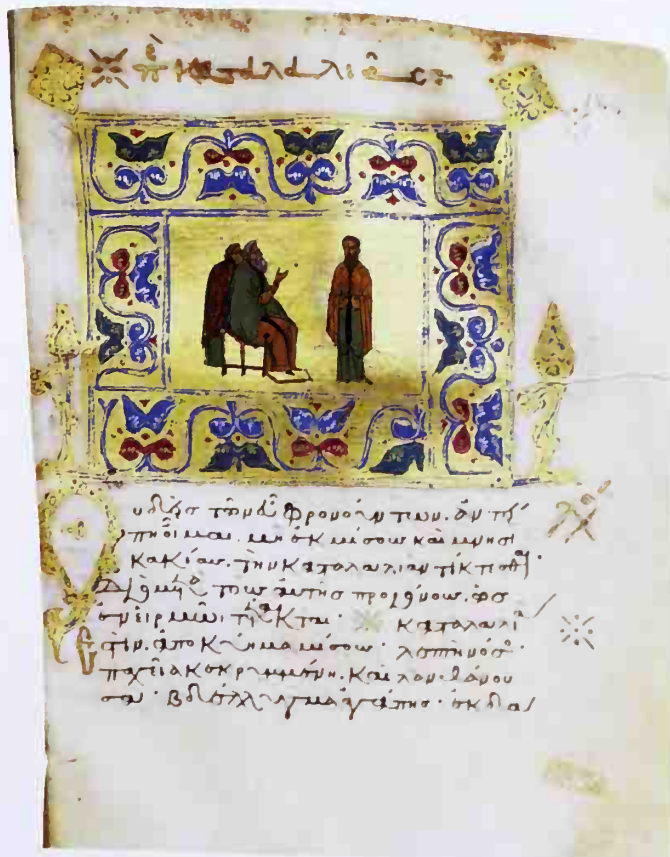 Περὶ καταλαλιᾶς
Οὐδεὶς τῶν εὖ φρονούντων, ἀντει
πῆ οἶμαι. μὴ ἐκ μίσους καὶ μνησι
κακίας. τὴν καταλαλιὰν τίκτεσθαι·
Διὸ μετὰ τοὺς αὐτῆς προγόνους. ὡς
ἐν εἱρμῶι τέτακται· καταλαλιά
ἐστιν. ἀποκύημα μίσους· λεπτὴ νόσος·
παχεῖα κεκρυμμένη. καὶ λανθάνου
σα· βδέλλα αἷμα ἀγάπης· ἐκδα